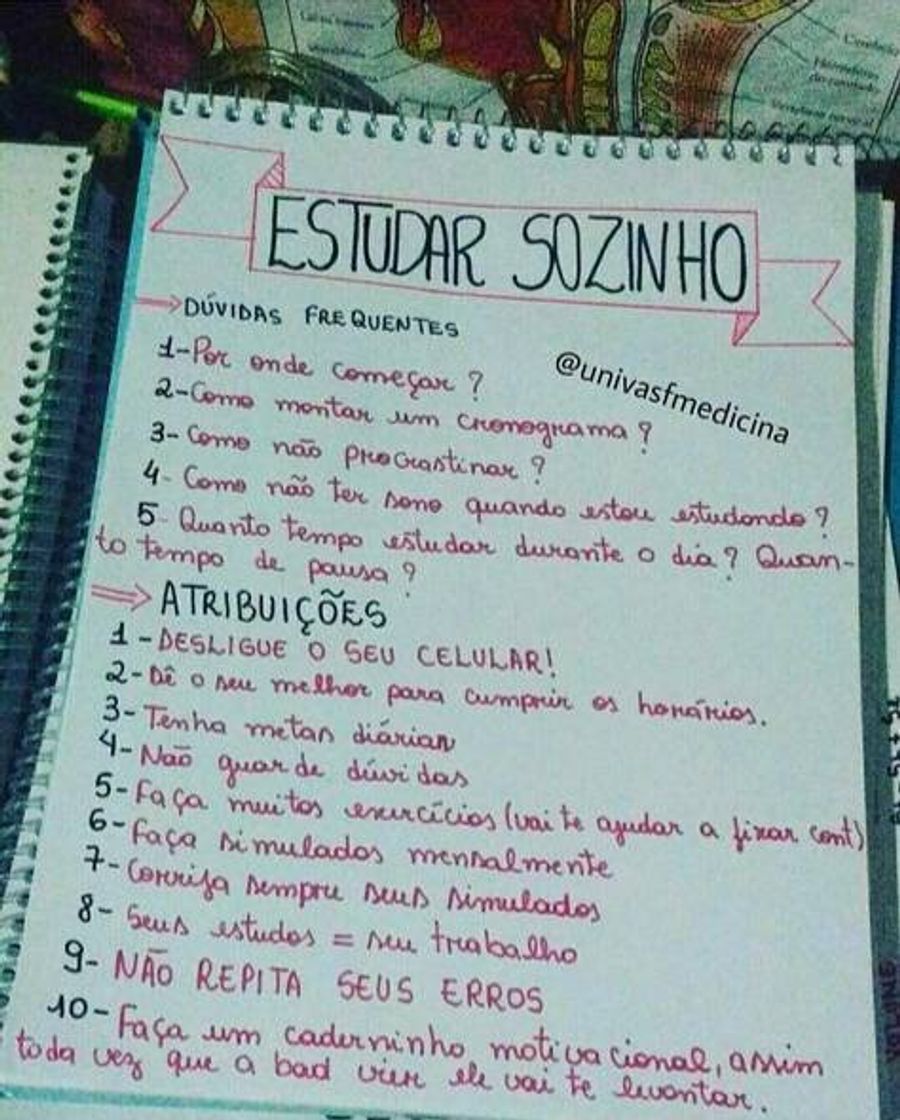 ESTUDAR SOZINHO
DÚVIDAS FREQUENTES
@univasfmedicina
1-Por onde começar?
2-Como montar um cronograma?
3- Como não procrastinar?
4- Como não ter sono quando estou estudando?
5- Quanto tempo estudar durante o dia? Quan-
to tempo de pausa?
ATRIBUIÇÕES
1 - DESLIGUE O SEU CELULAR!
2- Dê o seu melhor para cumprir os horários.
3- Tenha metas diárias
4- Não guarde dúvidas
5- Faça muitos exercícios (vai te ajudar a fixar cont)
6- Faça simulados mensalmente
7- Corrija sempre seus simulados
8- Seus estudos = seu trabalho
9- NÃO REPITA SEUS ERROS
10- Faça um caderninho motivacional, assim
toda vez que a bad vier ele vai te levantar.